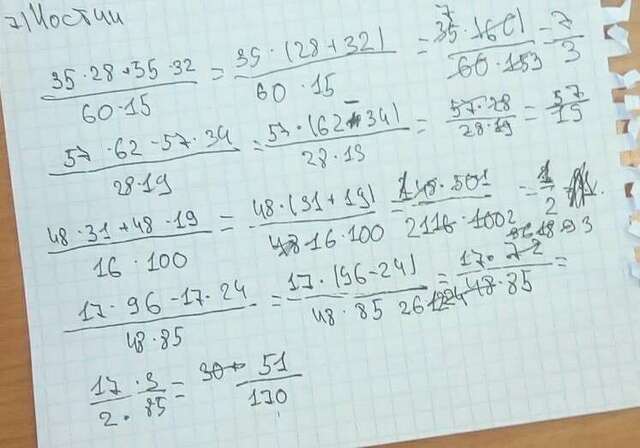 7) Мостик
(35·28+35·32)/(60·15) = (35·(28+32))/(60·15) = (35·60)/(60·15) = 7/3
(57·62-57·34)/(28·19) = (57·(62-34))/(28·19) = (57·28)/(28·19) = 57/19
(48·31+48·19)/(16·100) = (48·(31+19))/(16·100) = = 2
(17·96-17·24)/(48·85) = (17·(96-24))/(48·85) = (17·72)/(48·85) =
(17·3)/(2·85) = 51/170